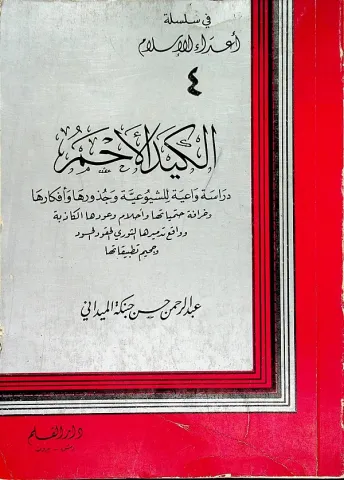 في سلسلة
أعداء الإسلام
٤
الكيد الأحمر
دراسة واعية للشيوعية وجذورها وأفكارها
وخرافة حتمياتها وأحلام وعودها الكاذبة
وواقع تدميرها الثوري الحقود الحسود
وجحيم تطبيقاتها
عبد الرحمن حسن حبنكة الميداني
دار القلم